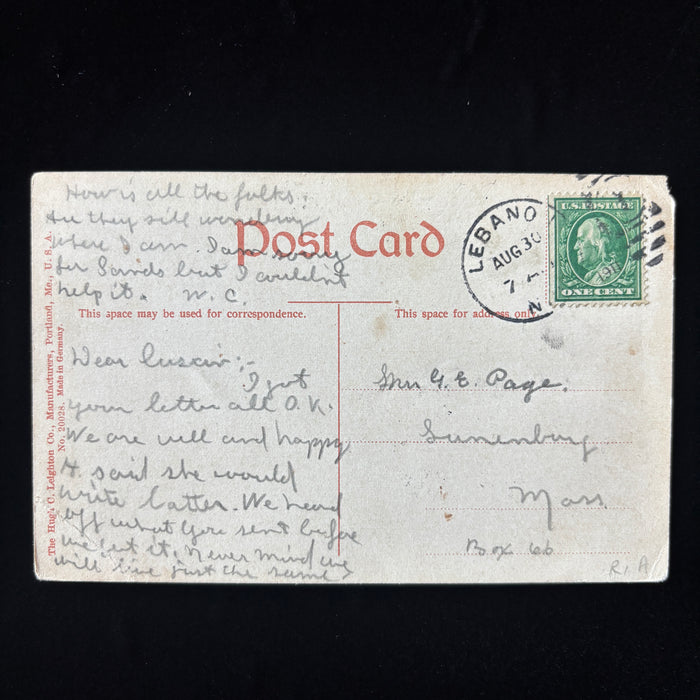 How is all the folks.
Are they still wondering
where I am. I am sorry
for Sands but I couldn't
help it. W. C.
Post Card
This space may be used for correspondence.
This space for address only.
The Hugh C. Leighton Co., Manufacturers, Portland, Me., U. S. A.
No. 20028. Made in Germany.
LEBANO
AUG 30
7 A
N
U.S. POSTAGE
ONE CENT
Dear :-
I got
your letter all O.K.
We are well and happy
A. said she would
write latter. We heard
off what you sent before
we got it. Never mind we
will live just the same
Mrs G. E. Page.
Lunenburg
Mass
Box 66
R, A